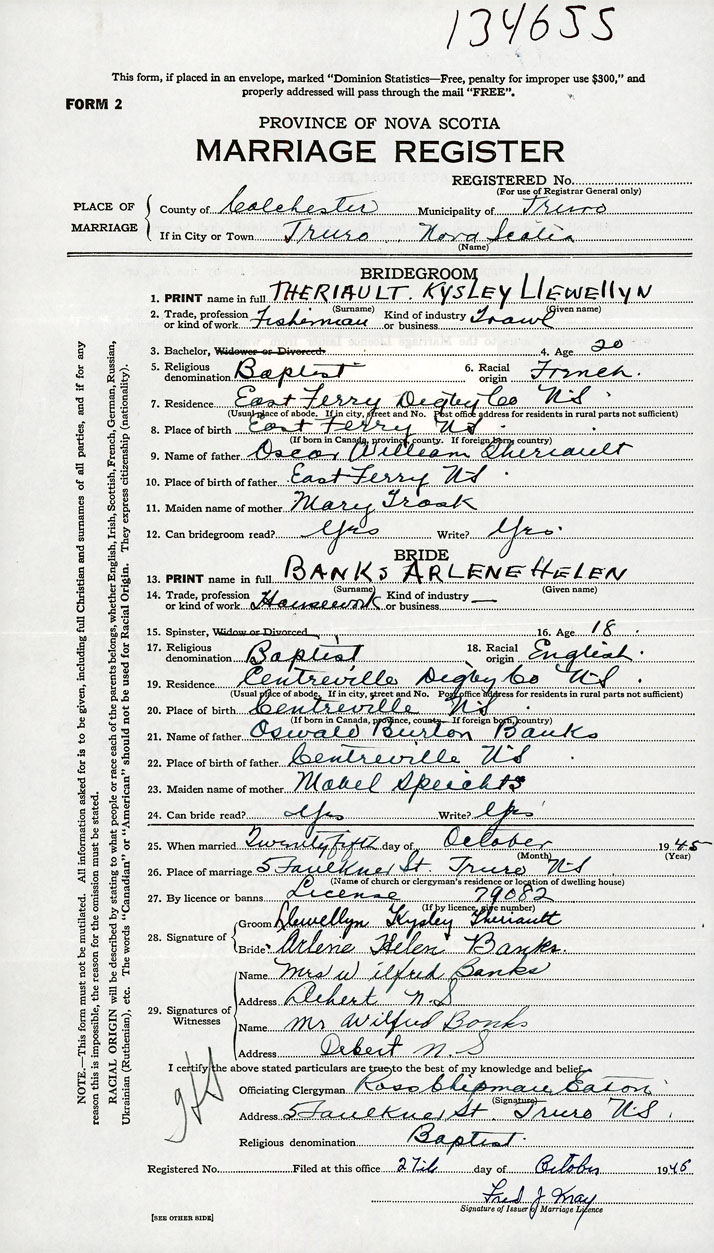 134655
This form, if placed in an envelope, marked "Dominion Statistics—Free, penalty for improper use $300," and
properly addressed will pass through the mail "FREE".
FORM 2
PROVINCE OF NOVA SCOTIA
MARRIAGE REGISTER
REGISTERED No.
(For use of Registrar General only)
PLACE OF MARRIAGE
County of Colchester Municipality of Truro
If in City or Town Truro Nova Scotia
(Name)
BRIDEGROOM
1. PRINT name in full THERIAULT. KYSLEY LlEWEllYN
(Surname) (Given name)
2. Trade, profession or kind of work Fisherman Kind of industry or business Trawl
3. Bachelor, Widower or Divorced 4. Age 20
5. Religious denomination Baptist 6. Racial origin French.
7. Residence East Ferry Digby Co NS
(Usual place of abode. If in city, street and No. Post office address for residents in rural parts not sufficient)
8. Place of birth East Ferry NS
(If born in Canada, province, county. If foreign born, country)
9. Name of father Oscar William Theriault
10. Place of birth of father East Ferry NS
11. Maiden name of mother Mary Trask
12. Can bridegroom read? Yes Write? Yes.
BRIDE
13. PRINT name in full BANKS ARLENE HELEN
(Surname) (Given name)
14. Trade, profession or kind of work Housework Kind of industry or business —
15. Spinster, Widow or Divorced 16. Age 18.
17. Religious denomination Baptist 18. Racial origin English.
19. Residence Centreville Digby Co NS.
(Usual place of abode. If in city, street and No. Post office address for residents in rural parts not sufficient)
20. Place of birth Centreville NS.
(If born in Canada, province, county. If foreign born, country)
21. Name of father Oswald Burton Banks
22. Place of birth of father Centreville NS
23. Maiden name of mother Mabel Speichts
24. Can bride read? Yes Write? Yes
25. When married Twenty fifth day of October 1945
(Month) (Year)
26. Place of marriage 5 Faulkner St. Truro NS
(Name of church or clergyman's residence or location of dwelling house)
27. By licence or banns License 79082
(If by licence, give number)
28. Signature of Groom Llewellyn Kysley Theriault
Bride Arlene Helen Banks.
29. Signatures of Witnesses
Name Mrs Wilfred Banks
Address Debert N.S
Name Mr Wilfred Banks
Address Debert N.S
I certify the above stated particulars are true to the best of my knowledge and belief.
Officiating Clergyman Ross Chipman Eaton
(Signature)
Address 5 Faulkner St Truro NS.
Religious denomination Baptist.
Registered No. Filed at this office 27th day of October 1945
Fred J Kray
Signature of Issuer of Marriage Licence
[SEE OTHER SIDE]
NOTE.—This form must not be mutilated. All information asked for is to be given, including full Christian and surnames of all parties, and if for any
reason this is impossible, the reason for the omission must be stated.
RACIAL ORIGIN will be described by stating to what people or race each of the parents belongs, whether English, Irish, Scottish, French, German, Russian,
Ukrainian (Ruthenian), etc. The words "Canadian" or "American" should not be used for Racial Origin. They express citizenship (nationality).